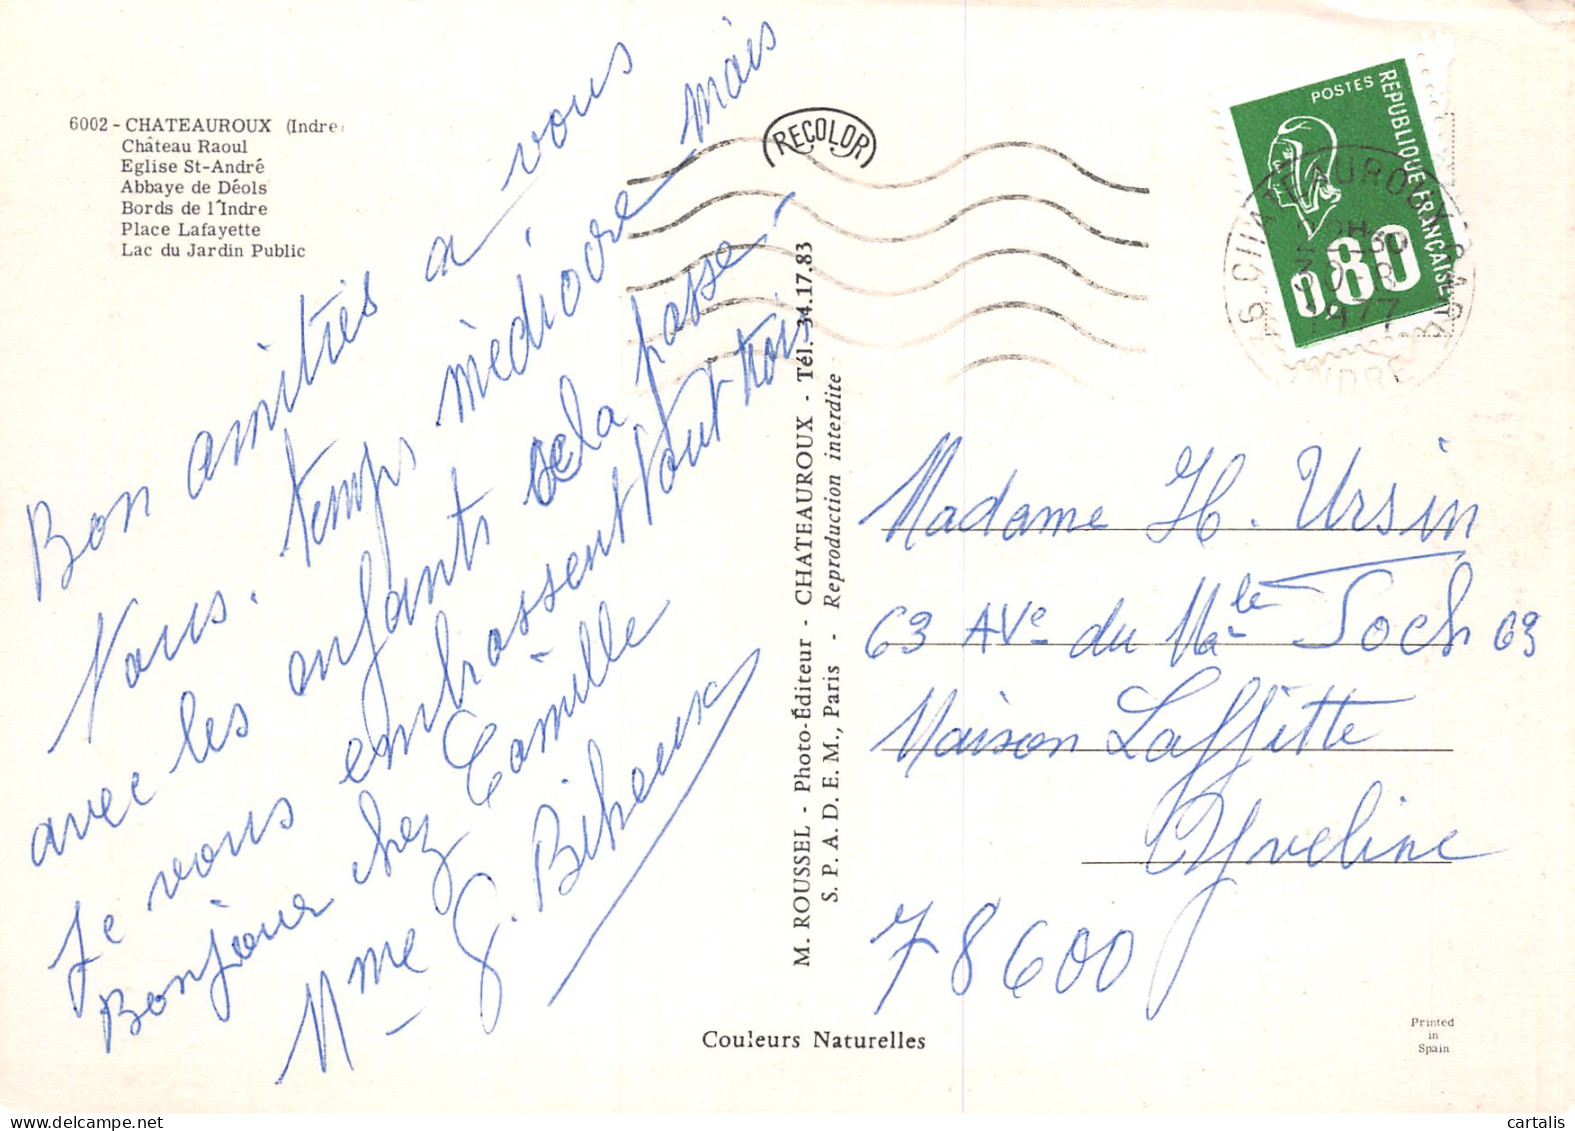 6002 - CHATEAUROUX (Indre)
Château Raoul
Eglise St-André
Abbaye de Déols
Bords de l'Indre
Place Lafayette
Lac du Jardin Public
Bon amitiés a vous
Nous. temps médiocre mais
avec les enfants cela passe
Je vous embrassent tout trois
Bonjour chez Camille
Mme G. Biheux
RECOLOR
M. ROUSSEL - Photo-Éditeur - CHATEAUROUX - Tél. 34.17.83
S. P. A. D. E. M., Paris - Reproduction interdite
POSTES
REPUBLIQUE FRANÇAISE
0.80
36 CHATEAUROUX
30-8
1977
INDRE
Madame H. Ursin
63 AVe du Male Foch 63
Maison Laffitte
Yveline
78600
Couleurs Naturelles
Printed
in
Spain
cartalis